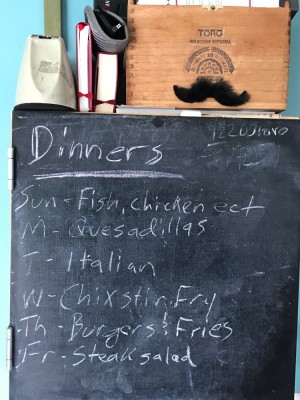 TORO
Dinners
Sun - Fish, chicken ect
M - Quesadillas
T - Italian
W - Chix stir Fry
Th - Burgers & Fries
Fr - Steak salad